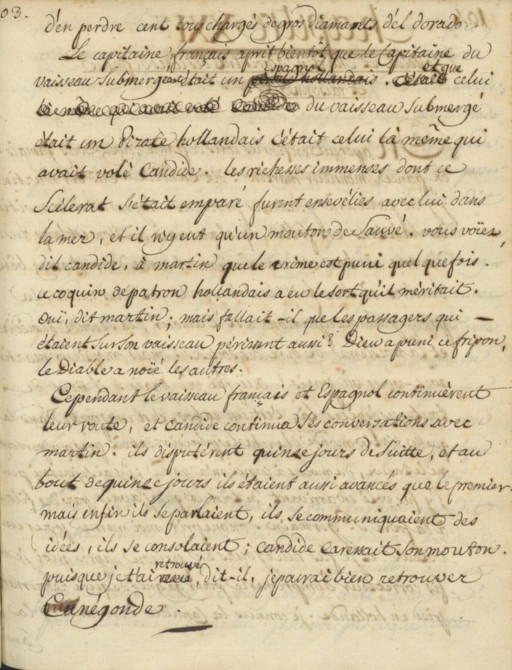 03.
d'en perdre cent tous chargés de gros diamants d'él dorado.
Le capitaine français aprit bientot que le Capitaine du
vaisseau submergeant était un espagnol et que celui
du vaisseau submergé
était un pirate hollandais c'était celui la même qui
avait volé Candide. les richesses immenses dont ce
Scélerat s'était emparé furent ensevelies avec lui dans
la mer, et il n'y eut qu'un mouton de sauvé. vous voiez
dit candide, à martin que le crime est puni quelquefois.
ce coquin de patron hollandais a eu le sort qu'il méritait.
ouï, dit martin; mais fallait-il que les passagers qui
étaient sur son vaisseau périssent aussi? Dieu a puni ce fripon,
le Diable a noïé les autres.
Cependant le vaisseau français et Espagnol continuèrent
leur route, et candide continua ses conversations avec
martin. ils disputérent quinze jours de suitte, et au
bout de quinze jours ils étaient aussi avancés que le premier.
mais enfin ils se parlaient, ils se communiquaient des
idées, ils se consolaient; candide caressait son mouton.
puisque je t'ai retrouvé, dit-il, je pourai bien retrouver
Cunégonde.